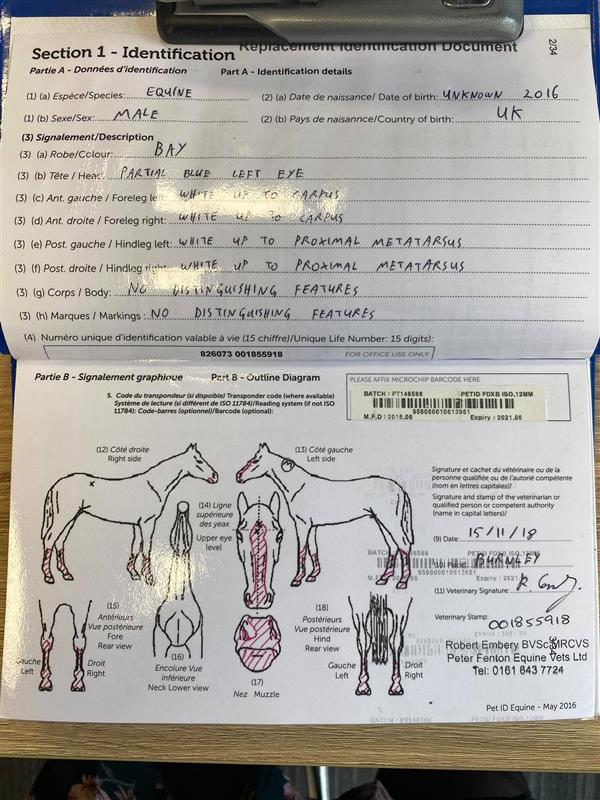 Replacement Identification Document
2/34
Section 1 - Identification
Partie A - Données d'identification Part A - Identification details
(1) (a) Espèce/Species: EQUINE (2) (a) Date de naissance/ Date of birth: UNKNOWN 2016
(1) (b) Sexe/Sex: MALE (2) (b) Pays de naisannce/Country of birth: UK
(3) Signalement/Description
(3) (a) Robe/Colour: BAY
(3) (b) Tête / Head: PARTIAL BLUE LEFT EYE
(3) (c) Ant. gauche / Foreleg left: WHITE UP TO CARPUS
(3) (d) Ant. droite / Foreleg right: WHITE UP TO CARPUS
(3) (e) Post. gauche / Hindleg left: WHITE UP TO PROXIMAL METATARSUS
(3) (f) Post. droite / Hindleg right: WHITE UP TO PROXIMAL METATARSUS
(3) (g) Corps / Body: NO DISTINGUISHING FEATURES
(3) (h) Marques / Markings: NO DISTINGUISHING FEATURES
(4) Numéro unique d'identification valable à vie (15 chiffre)/Unique Life Number: 15 digits):
826073 001855918 FOR OFFICE USE ONLY
Partie B - Signalement graphique Part B - Outline Diagram
5. Code du transpondeur (si disponible) Transponder code (where available)
Système de lecture (si différent de ISO 11784)/Reading system (if not ISO
11784): Code-barres (optionnel)/Barcode (optional):
PLEASE AFFIX MICROCHIP BARCODE HERE
BATCH: PT146586 PETID FDXB ISO,12MM
958000010613951
M.F.D: 2016.06 Expiry: 2021.06
(12) Côté droite
Right side
(13) Côté gauche
Left side
(14) Ligne
supérieure
des yeax
Upper eye
level
Signature et cachet du vétérinaire ou de la
personne qualifiée ou de l'autorité compétente
(nom en lettres capitales)/
Signature and stamp of the veterinarian or
qualified person or competent authority
(name in capital letters)/
(9) Date: 15/11/18
(10) Place: BURNLEY
(11) Veterinary Signature:
Veterinary Stamp: 001855918
Robert Embery BVSc MRCVS
Peter Fenton Equine Vets Ltd
Tel: 0161 643 7724
3/34
(15)
Antérieurs
Vue postérieure
Fore
Rear view
Gauche
Left
Droit
Right
(16)
Encolure Vue
inférieure
Neck Lower view
(17)
Nez Muzzle
(18)
Postérieurs
Vue postérieure
Hind
Rear view
Gauche
Left
Droit
Right
Pet ID Equine - May 2016